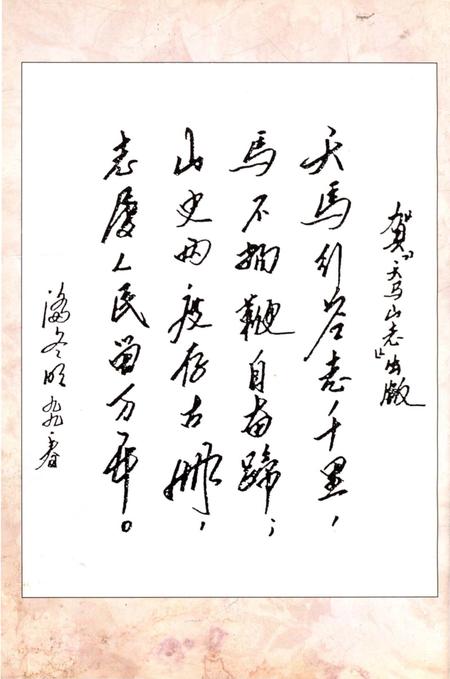 賀“天马山志”出版
天馬行空志千里，
馬不揚鞭自奋蹄；
山史两度存古册，
志人民留万年。
九九·春